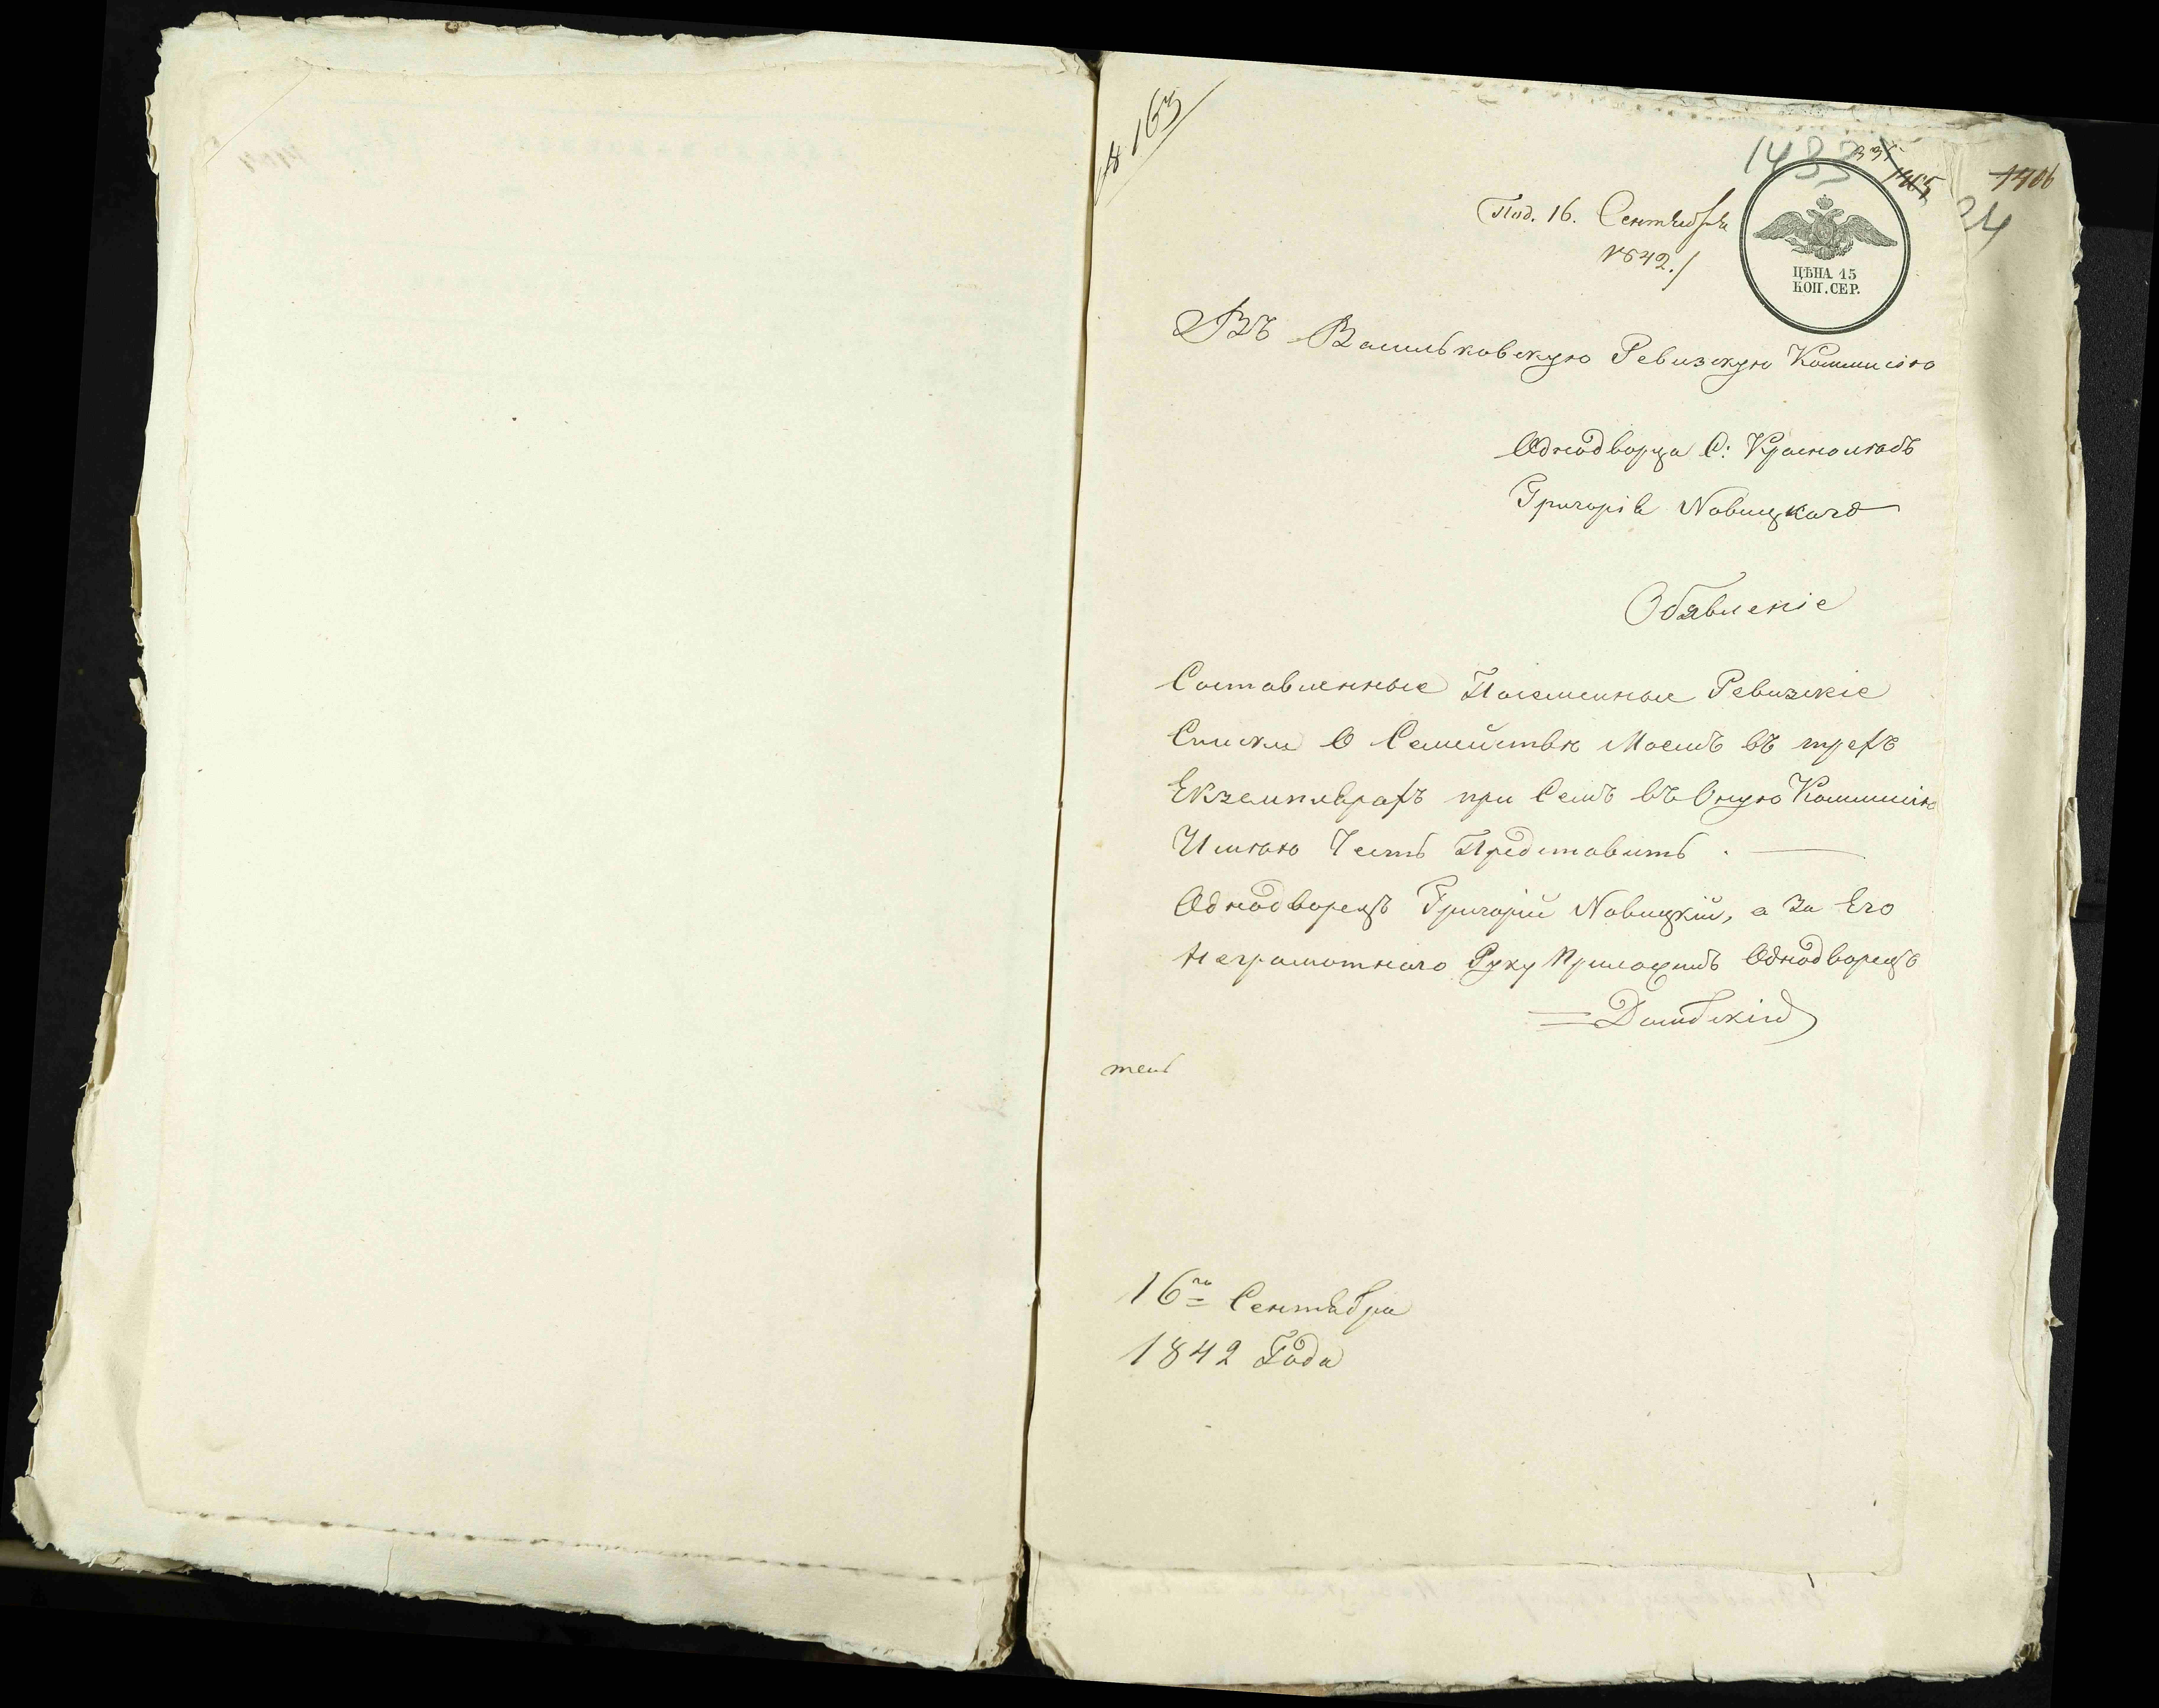 № 163
1433
1406
24
Под. 16. Сентября
1842./
ЦѢНА 15
КОП. СЕР.
Въ Васильковскую Ревизкую Коммисію
Однодворца С:
Григорія Новицкаго
Обявленіе
Составленные Посемейные Ревизкіе
Списки О Семействѣ Моемъ въ трехъ
Екземплярахъ при Семъ въ Оную Коммисію
Имѣю Честь Представить.
Однодворецъ Григорій Новицкій, а За Его
Неграмотнаго Руку Приложилъ Однодворецъ
Домбскій
16го Сентября
1842 Года